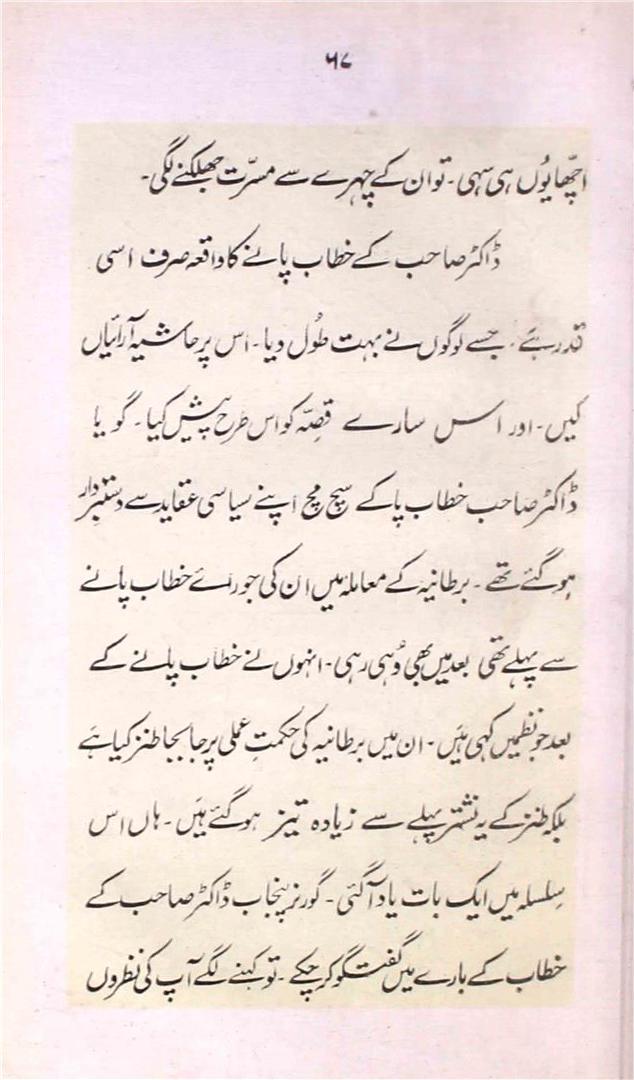 ۶۷
اچّھا یوُں ہی سہی۔ تو ان کے چہرے سے مسرّت جھلکنے لگی۔
ڈاکٹر صاحب کے خطاب پانے کا واقعہ صرف اسی
قدر ہے۔ جسے لوگوں نے بہت طوُل دیا۔ اس پر حاشیہ آرائیاں
کیں۔ اور اس سارے قصِہّ کو اس طرح پیش کیا۔ گویا
ڈاکٹر صاحب خطاب پا کے سچ مچ اپنے سیاسی عقاید سے دستبردار
ہو گئے تھے۔ برطانیہ کے معاملہ میں ان کی جو رائے خطاب پانے
سے پہلے تھی بعد میں بھی وُہی رہی۔ انہوں نے خطاب پانے کے
بعد جو نظمیں کہی ہیَں۔ ان میں برطانیہ کی حکمتِ عملی پر جا بجا طنز کیا ہے
بلکہ طنز کے یہ نشتر پہلے سے زیادہ تیز ہو گئے ہیَں۔ ہاں اس
سِلسلہ میں ایک بات یاد آ گئی۔ گورنر پنجاب ڈاکٹر صاحب کے
خطاب کے بارے میں گفتگو کر چکے۔ تو کہنے لگے آپ کی نظروں